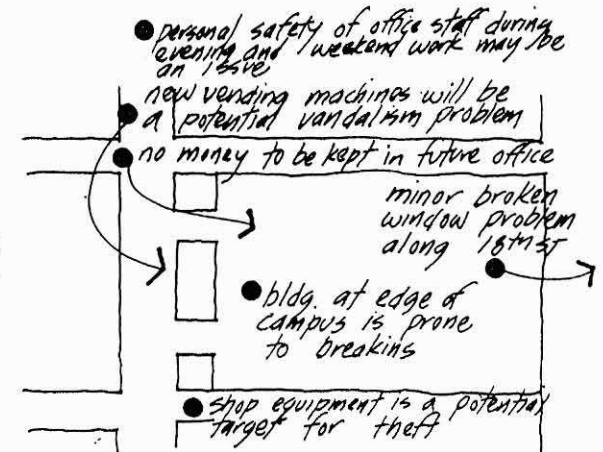 personal safety of office staff during
evening and weekend work may be
an issue
new vending machines will be
a potential vandalism problem
no money to be kept in future office
minor broken
window problem
along 18th st
bldg. at edge of
campus is prone
to breakins
shop equipment is a potential
target for theft